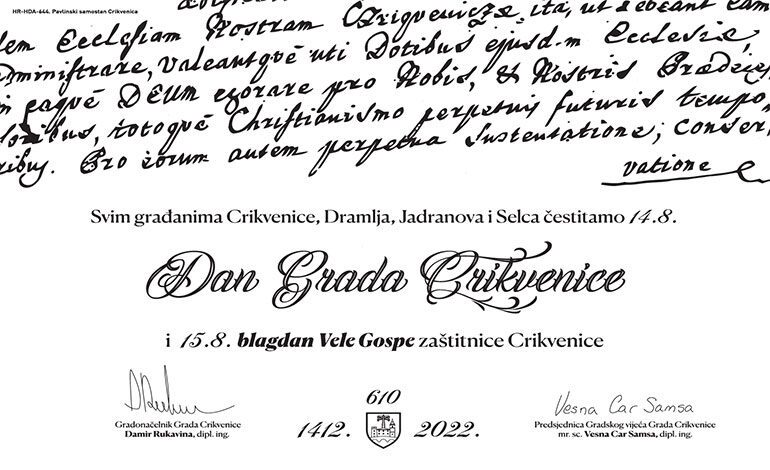 HR-HDA-644. Pavlinski samostan Crikvenica
dem Ecclesiam Nostram Czriqvenicze, ita, ut debeant eam
administrare, valeantqvè uti Dotibus ejusd.m Ecclesiæ,
eaqvè DEUM exorare pro Nobis, & Nostris Prædeces-
soribus, totoqvè Christianismo perpetuis futuris tempo-
ribus. Pro eorum autem perpetua sustentatione, conser-
vatione
Svim građanima Crikvenice, Dramlja, Jadranova i Selca čestitamo 14.8.
Dan Grada Crikvenice
i 15.8. blagdan Vele Gospe zaštitnice Crikvenice
610
1412. 2022.
Gradonačelnik Grada Crikvenice
Damir Rukavina, dipl. ing.
Vesna Car Samsa
Predsjednica Gradskog vijeća Grada Crikvenice
mr. sc. Vesna Car Samsa, dipl. ing.